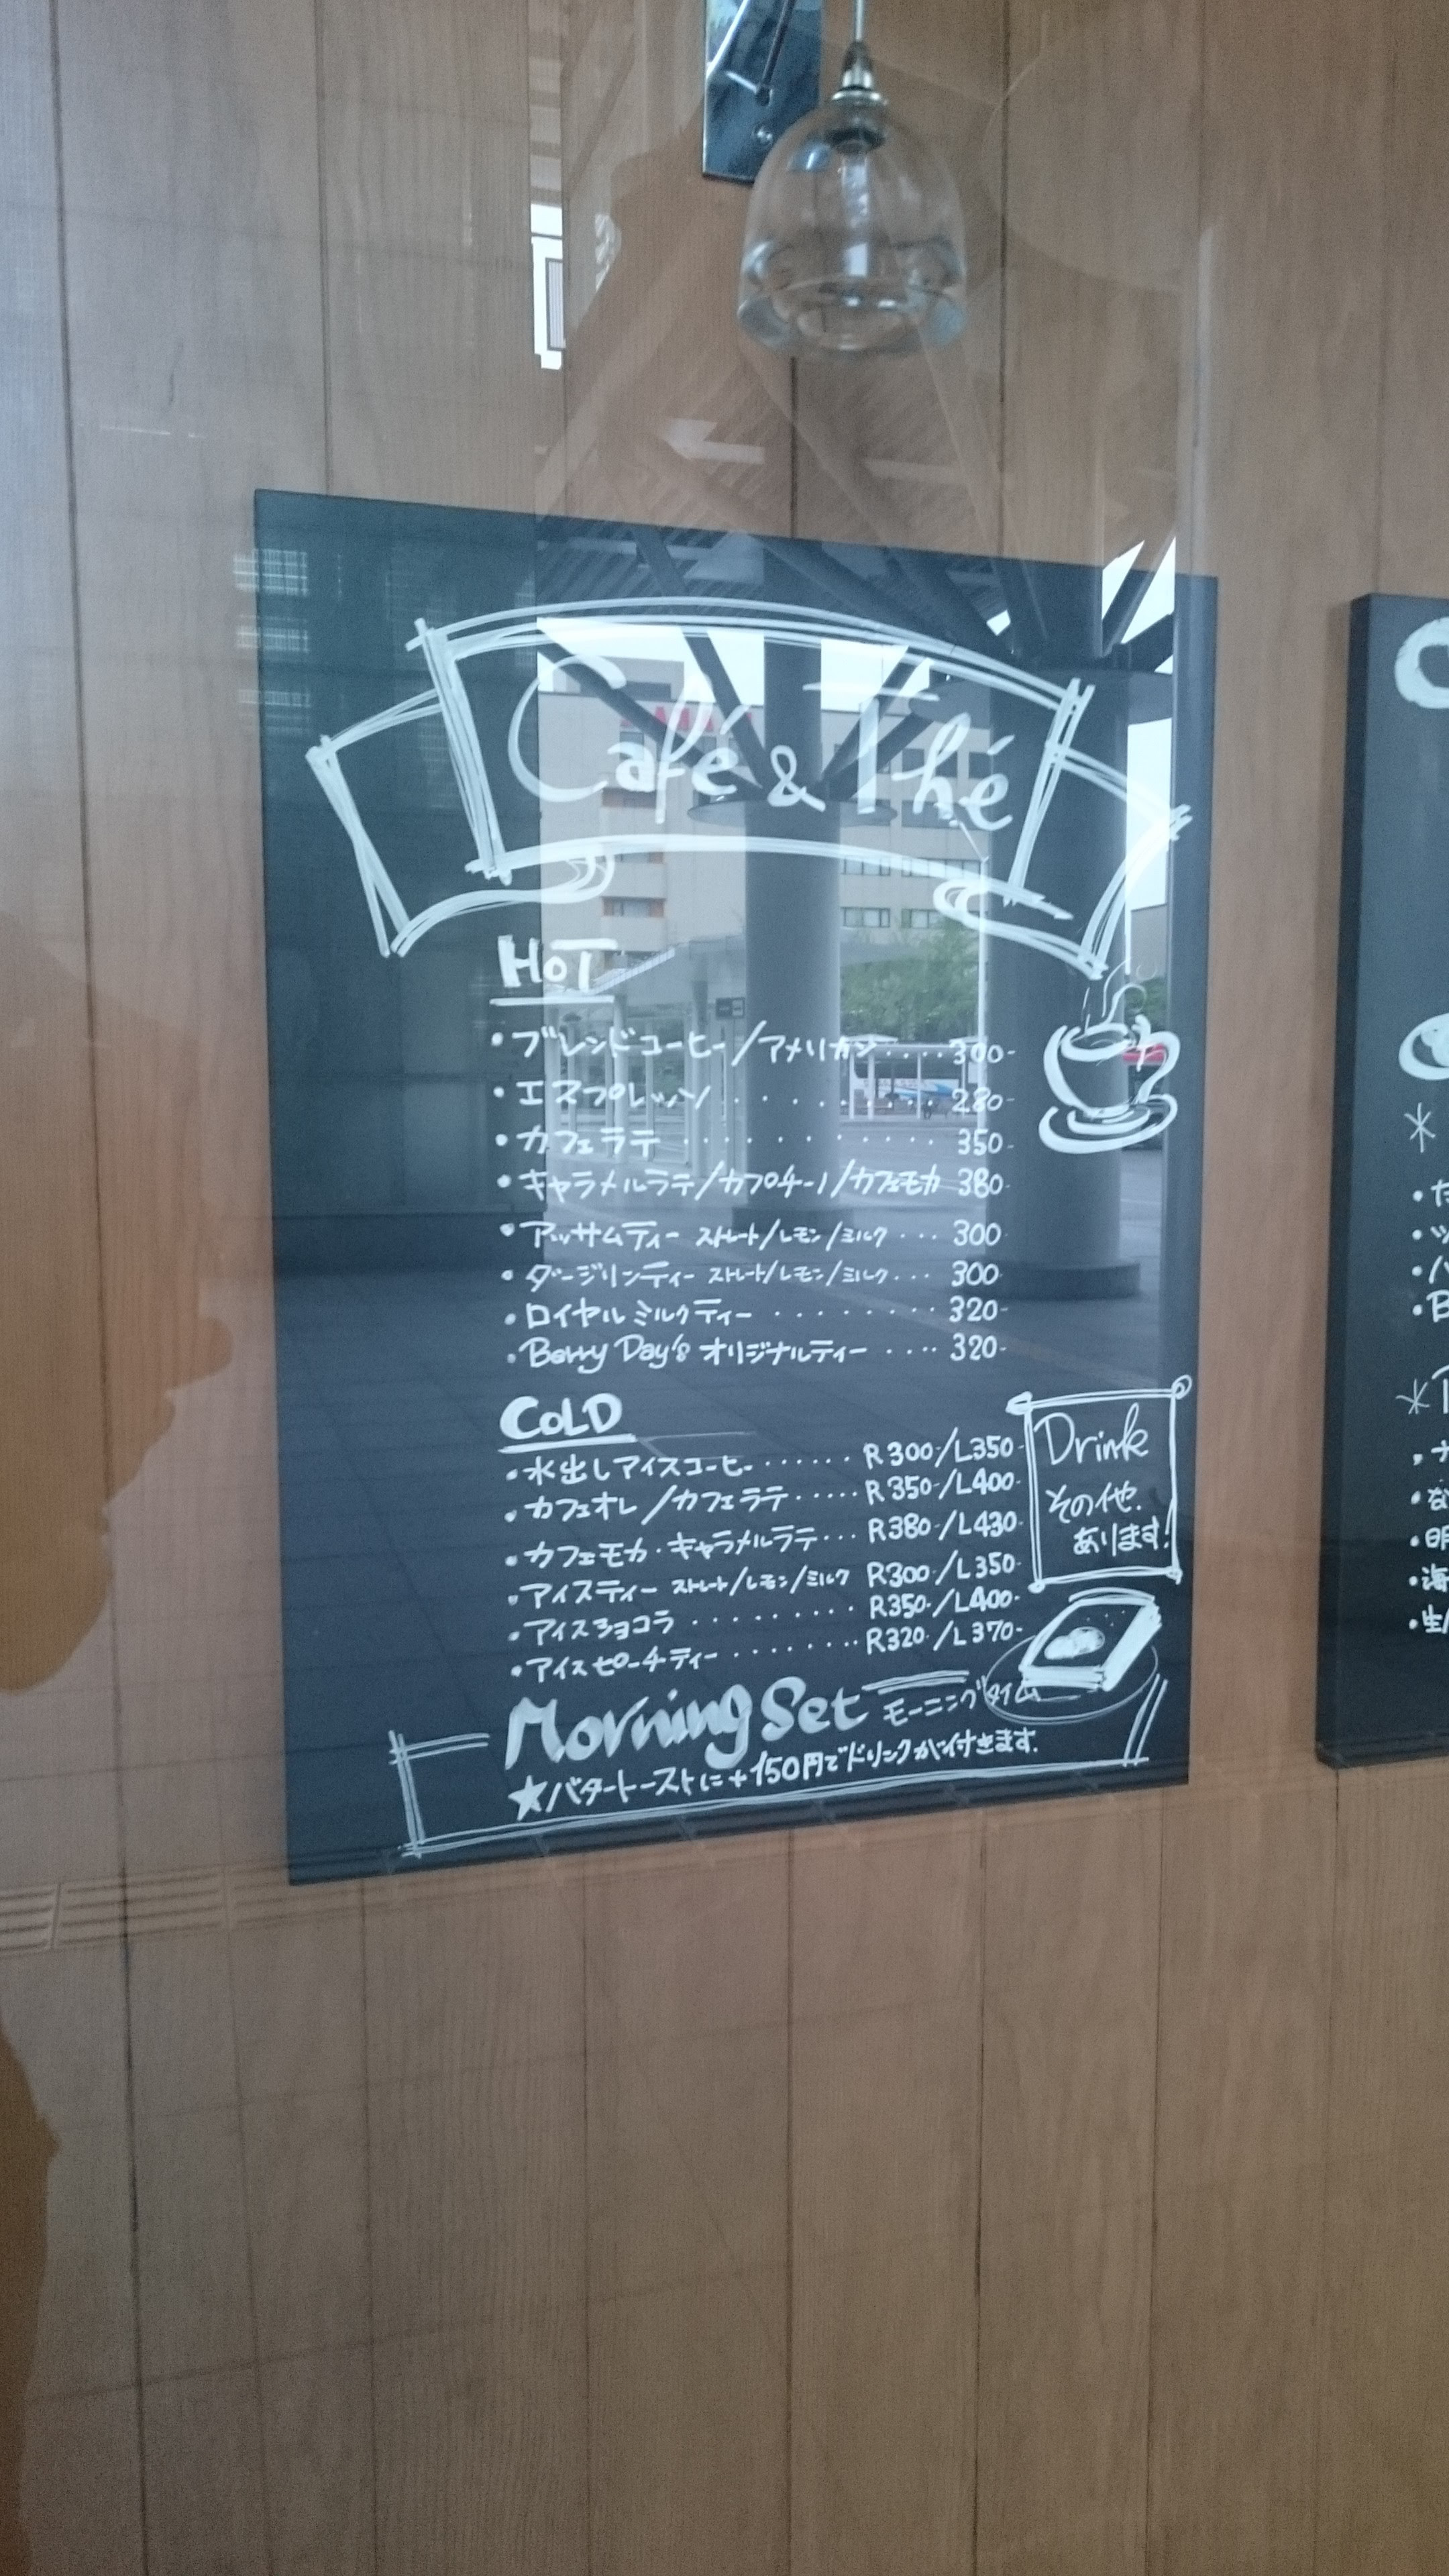 Café & Thé
HOT
・ブレンドコーヒー/アメリカン・・・・300-
・エスプレッソ・・・・・・・・・280-
・カフェラテ・・・・・・・・・・・350-
・キャラメルラテ/カプチーノ/カフェモカ 380-
・アッサムティー ストレート/レモン/ミルク・・・300
・ダージリンティー ストレート/レモン/ミルク・・・300
・ロイヤルミルクティー・・・・・・・・320-
・Berry Day's オリジナルティー・・・・320-
COLD
・水出しアイスコーヒー・・・・・・R300-/L350-
・カフェオレ/カフェラテ・・・・・R350-/L400-
・カフェモカ・キャラメルラテ・・・R380-/L430-
・アイスティー ストレート/レモン/ミルク R300-/L350-
・アイスショコラ・・・・・・・・・R350-/L400-
・アイスピーチティー・・・・・・・R320-/L370-
Drink
その他.
あります!
Morning Set モーニングタイム
★バタートーストに+150円でドリンクが付きます.